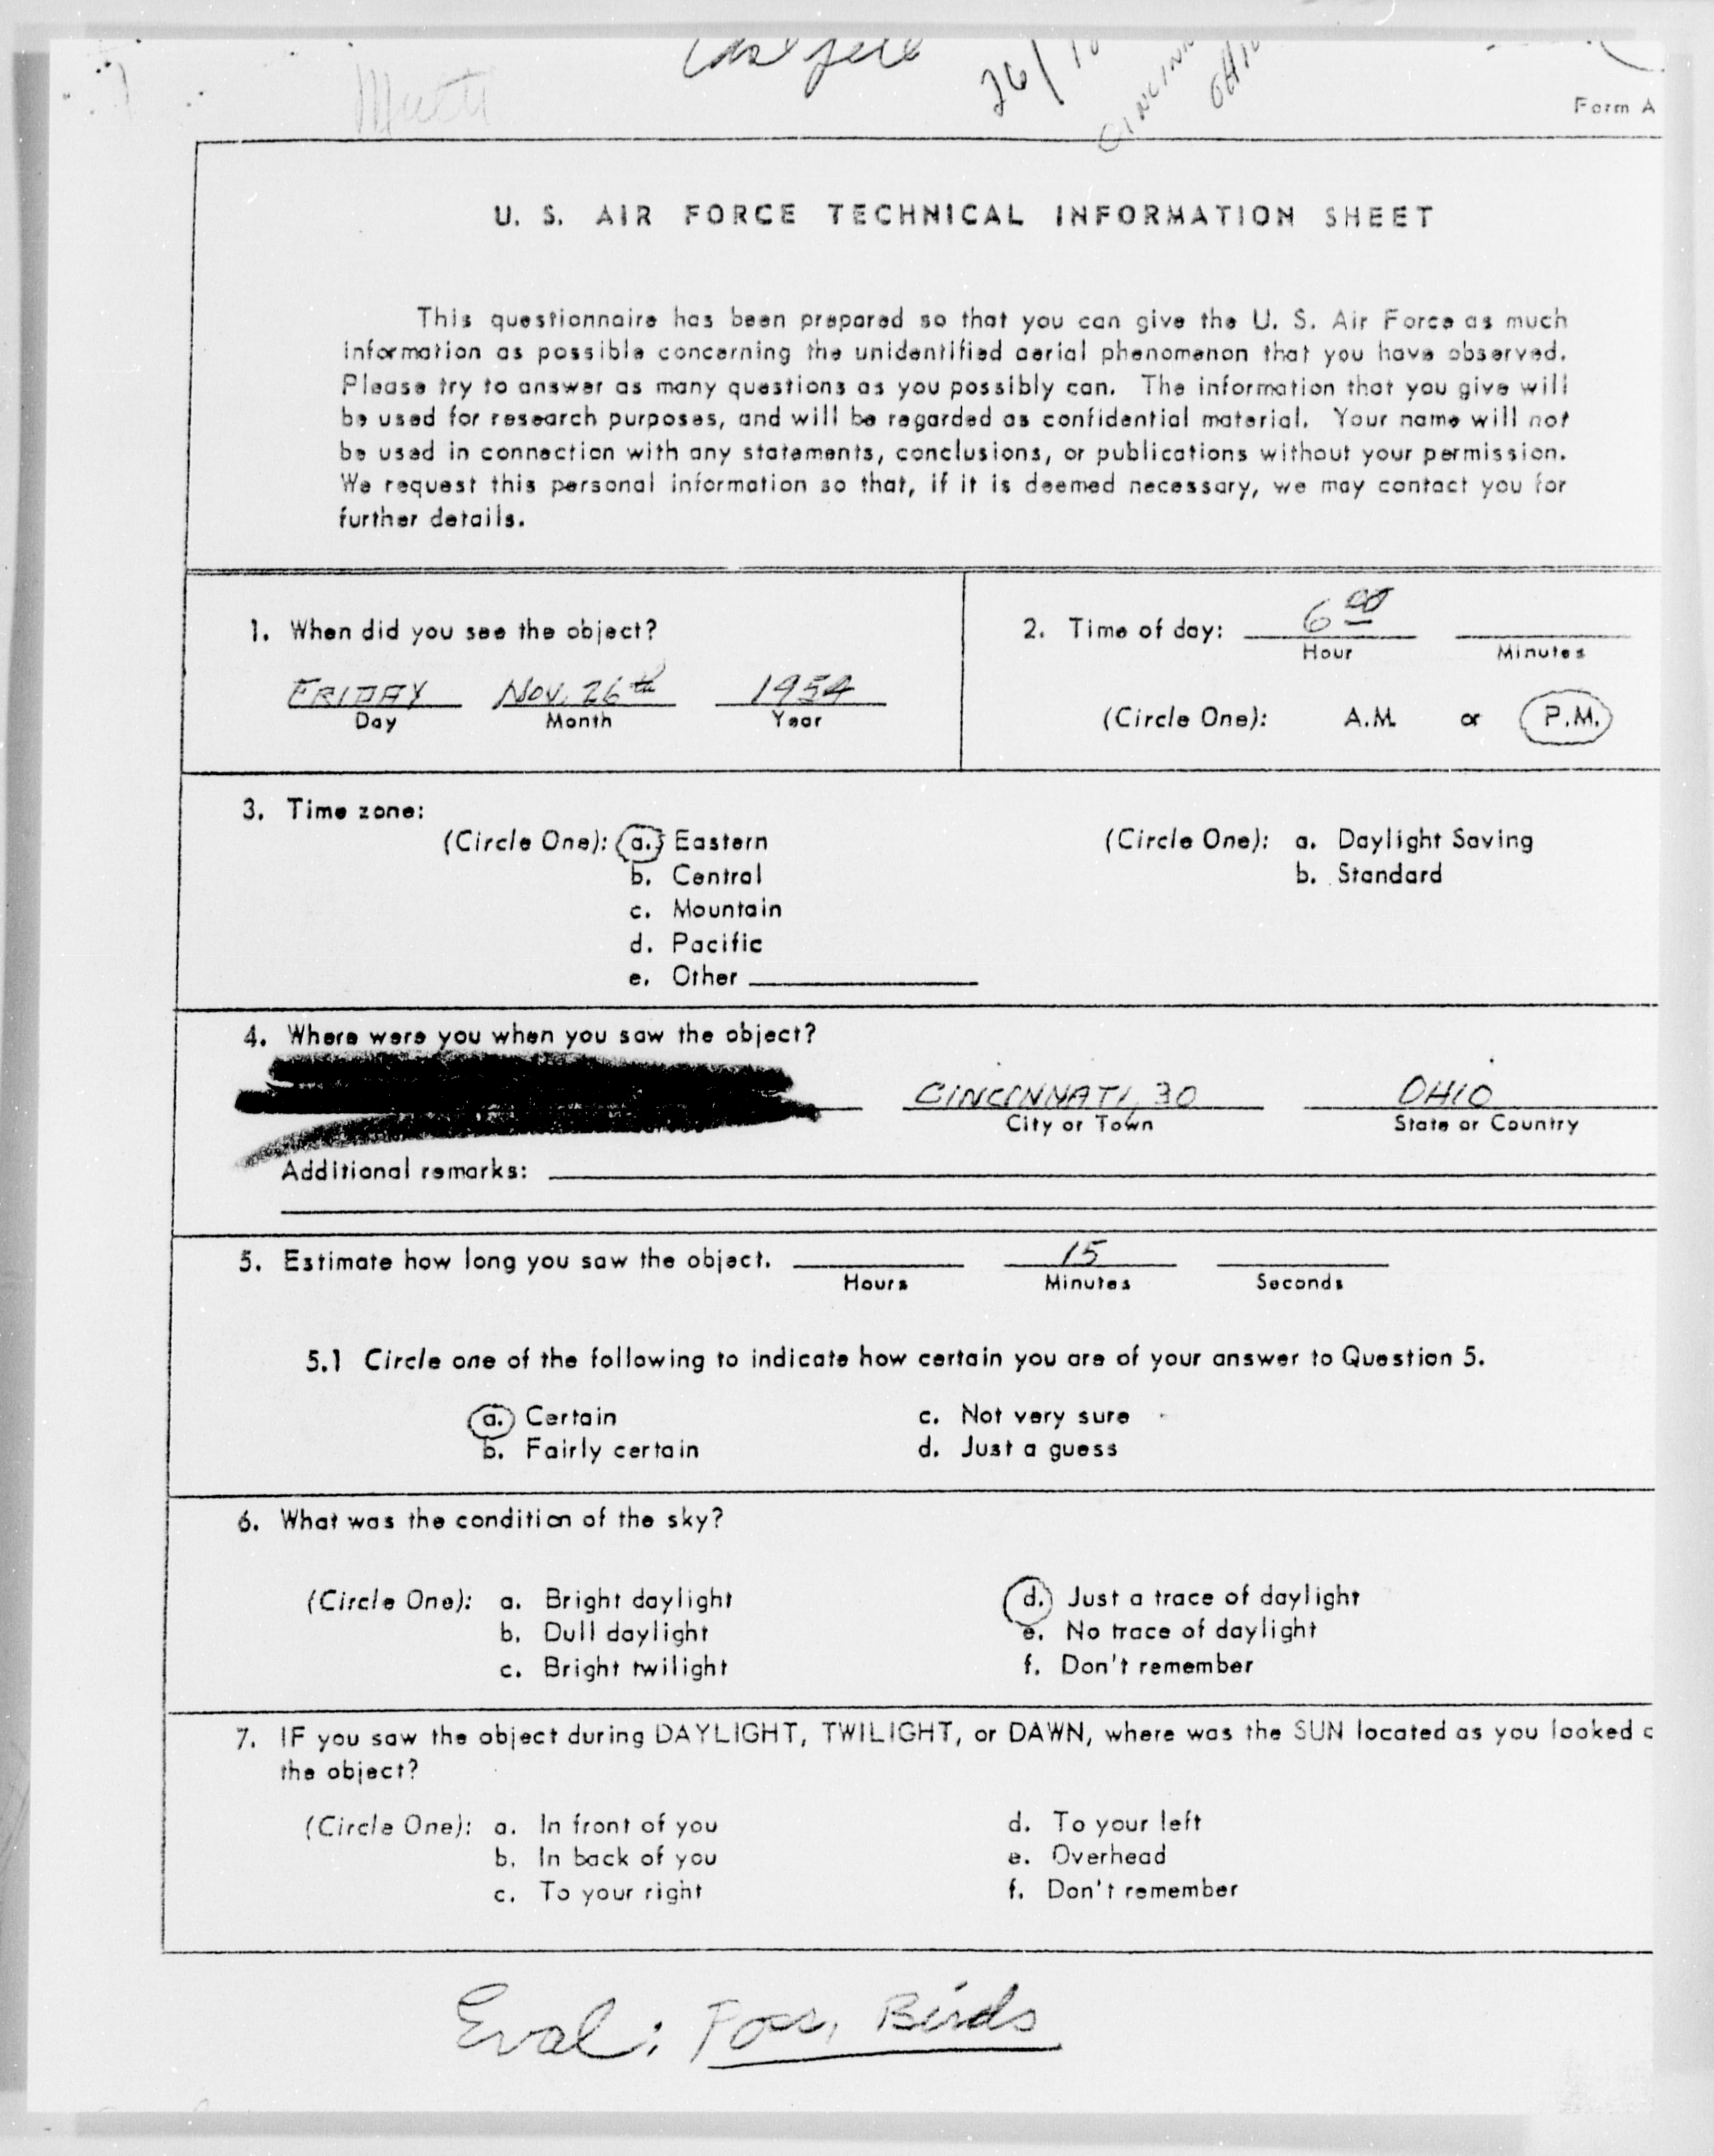 Case file
26/
CINCINN
OHIO
Form A
U. S. AIR FORCE TECHNICAL INFORMATION SHEET
This questionnaire has been prepared so that you can give the U. S. Air Force as much
information as possible concerning the unidentified aerial phenomenon that you have observed.
Please try to answer as many questions as you possibly can. The information that you give will
be used for research purposes, and will be regarded as confidential material. Your name will not
be used in connection with any statements, conclusions, or publications without your permission.
We request this personal information so that, if it is deemed necessary, we may contact you for
further details.
1. When did you see the object?
FRIDAY NOV. 26th 1954
Day Month Year
2. Time of day: 6 00
Hour Minutes
(Circle One): A.M. or P.M.
3. Time zone:
(Circle One): a. Eastern
b. Central
c. Mountain
d. Pacific
e. Other
(Circle One): a. Daylight Saving
b. Standard
4. Where were you when you saw the object?
CINCINNATI, 30 OHIO
City or Town State or Country
Additional remarks:
5. Estimate how long you saw the object. 15
Hours Minutes Seconds
5.1 Circle one of the following to indicate how certain you are of your answer to Question 5.
a. Certain c. Not very sure
b. Fairly certain d. Just a guess
6. What was the condition of the sky?
(Circle One): a. Bright daylight d. Just a trace of daylight
b. Dull daylight e. No trace of daylight
c. Bright twilight f. Don't remember
7. IF you saw the object during DAYLIGHT, TWILIGHT, or DAWN, where was the SUN located as you looked
the object?
(Circle One): a. In front of you d. To your left
b. In back of you e. Overhead
c. To your right f. Don't remember
Eval: Poss, Birds